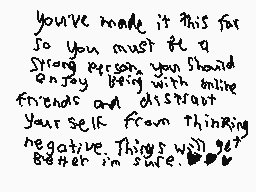 you've made it this far
So you must be a
Strong person, you should
enjoy being with online
friends and distract
your self from thinking
negative. Things will get
Better im sure. ♥♥♥